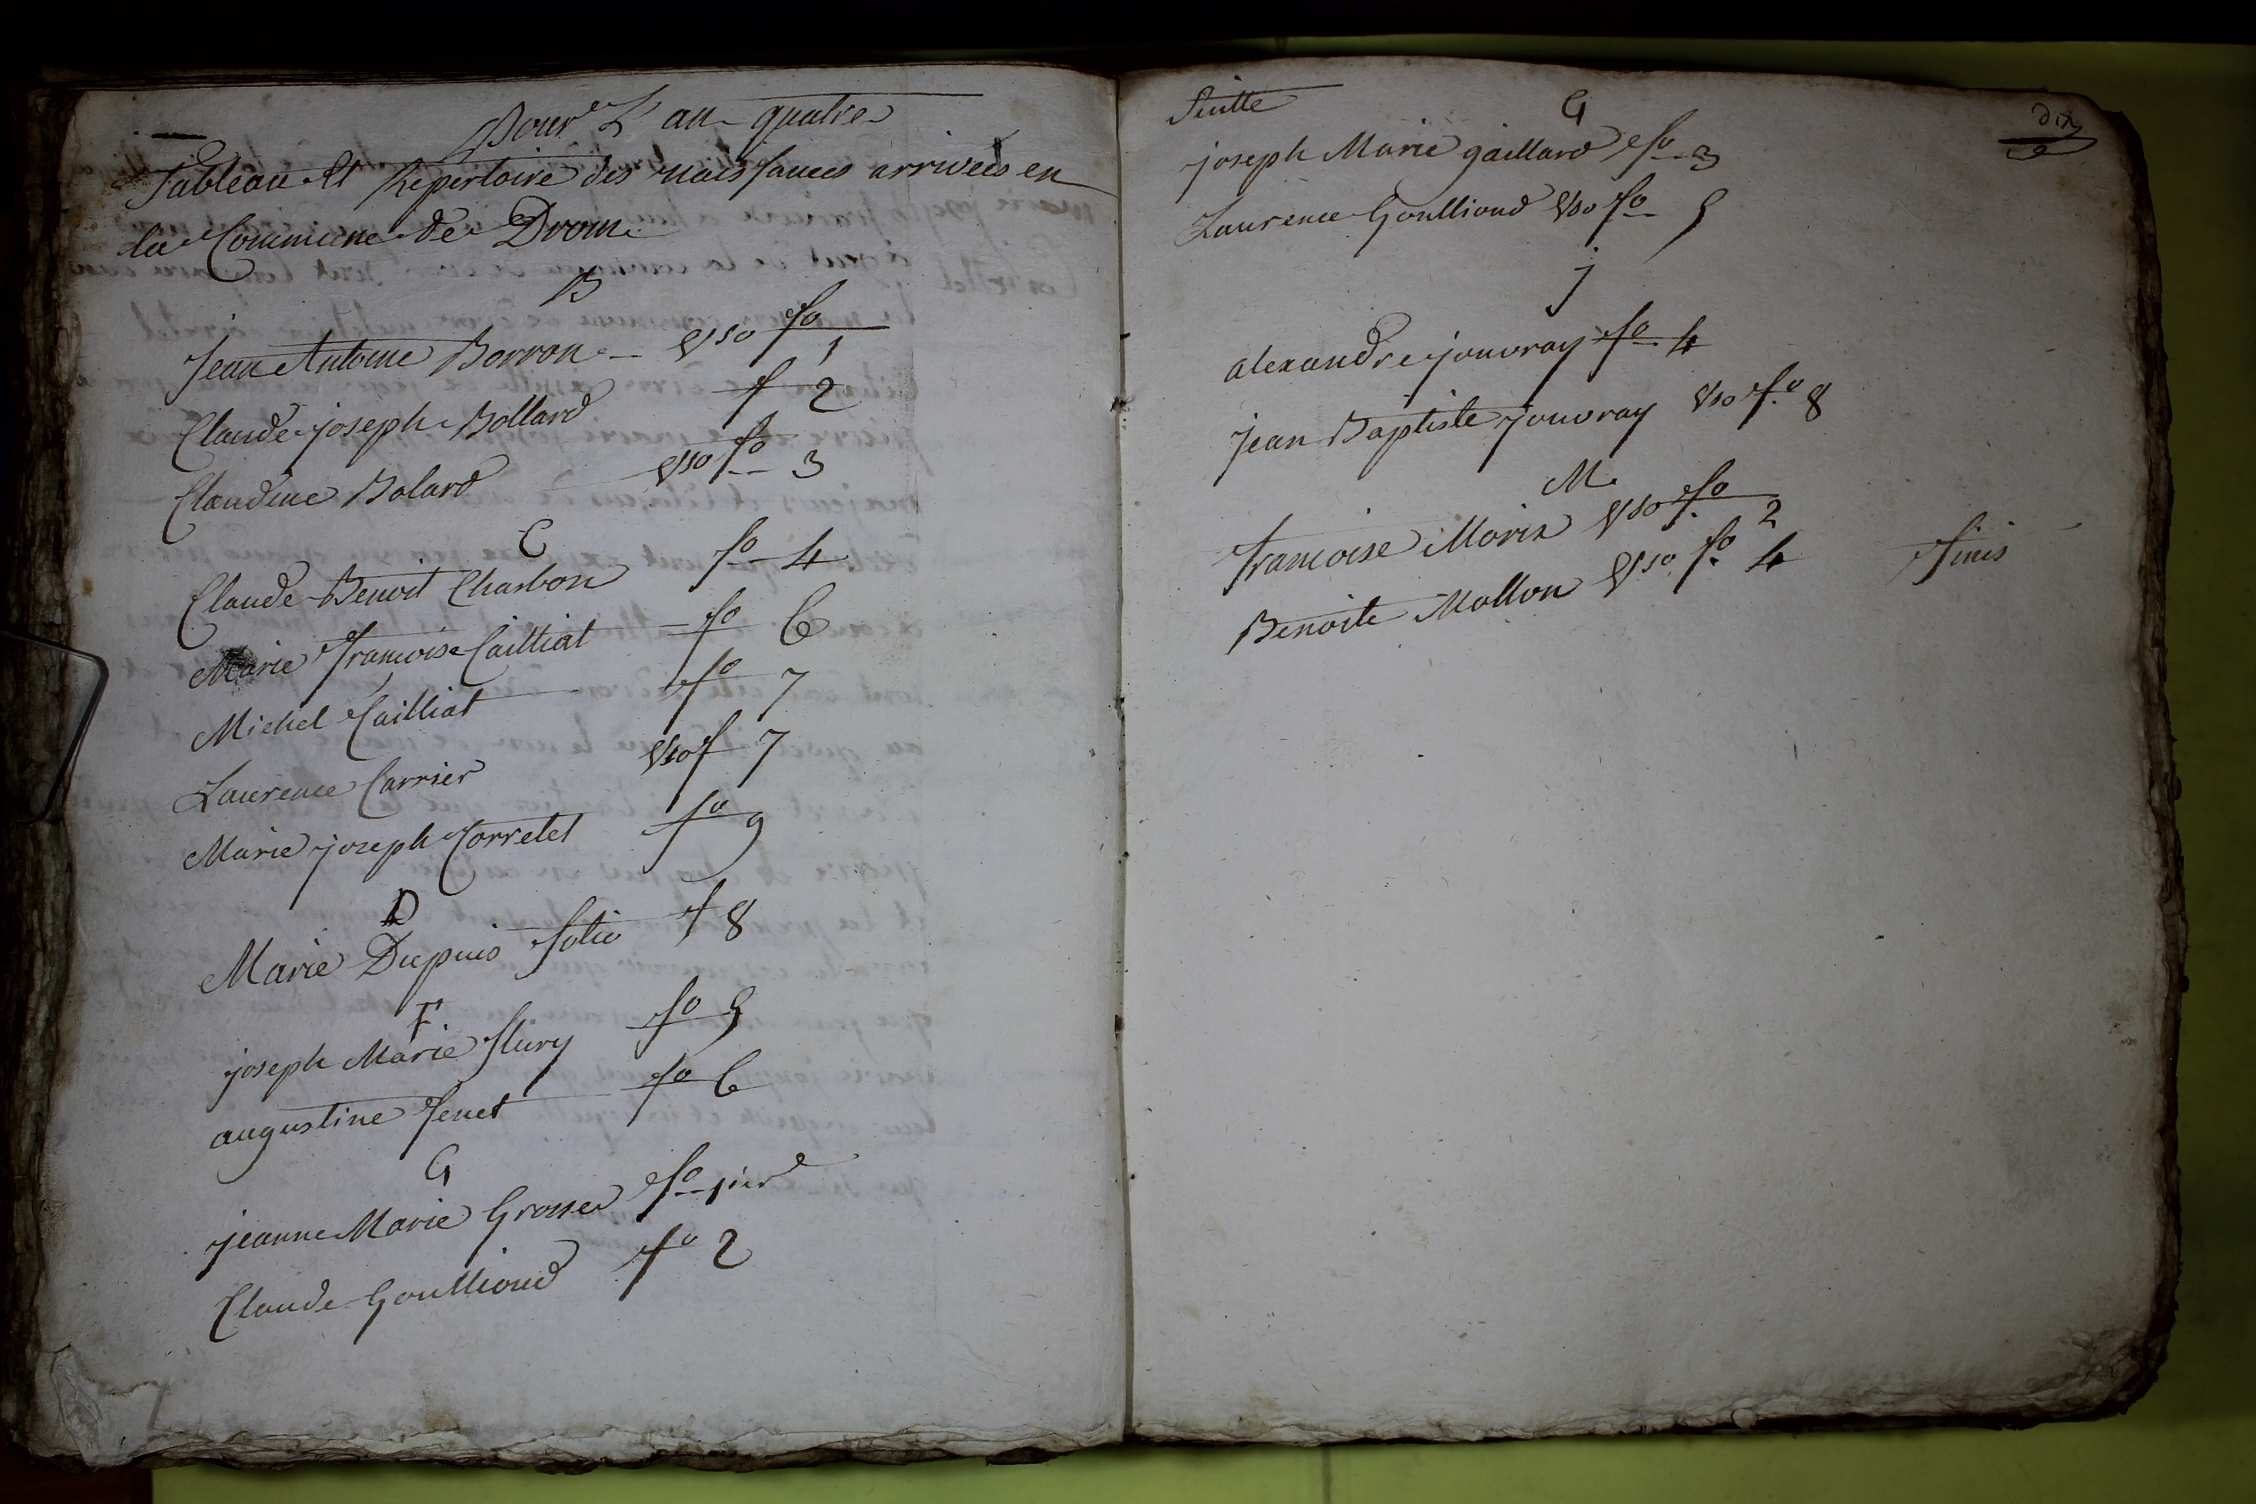 Pour L'an quatre
Tableau Et Repertoire des naissances arrivées en
la Commune de Drom
B
jean Antoine Borron vso fo 1
Claude joseph Bollard f 2
Claudine Bolard vso fo 3
C
Claude Benoit Charbon fo 4
Marie françoise Cailliat fo 6
Michel Cailliat fo 7
Laurence Carrier vso f 7
Marie joseph Corretet fo 9
D
Marie Dupuis folio f 8
F
joseph Marie flury fo 5
augustine fenet fo 6
G
jeanne Marie Grosse fo 1ier
Claude Goullioud fo 2
Suitte
dix
G
joseph Marie gaillard fo 3
Laurence Goullioud vso fo 5
j
alexandre jouvray fo 4
jean Baptiste jouvray vso fo 8
M
françoise Morin vso fo 2
Benoite Mollon vso fo 4 finis